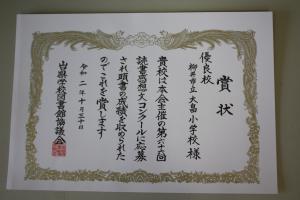 賞状
優良校
柳井市立大畠小学校様
貴校は本会主催の第六十六回
読書感想文コンクールに応募
され頭書の成績を収められた
のでこれを賞します
令和二年十月三十日
山口県学校図書館協議会